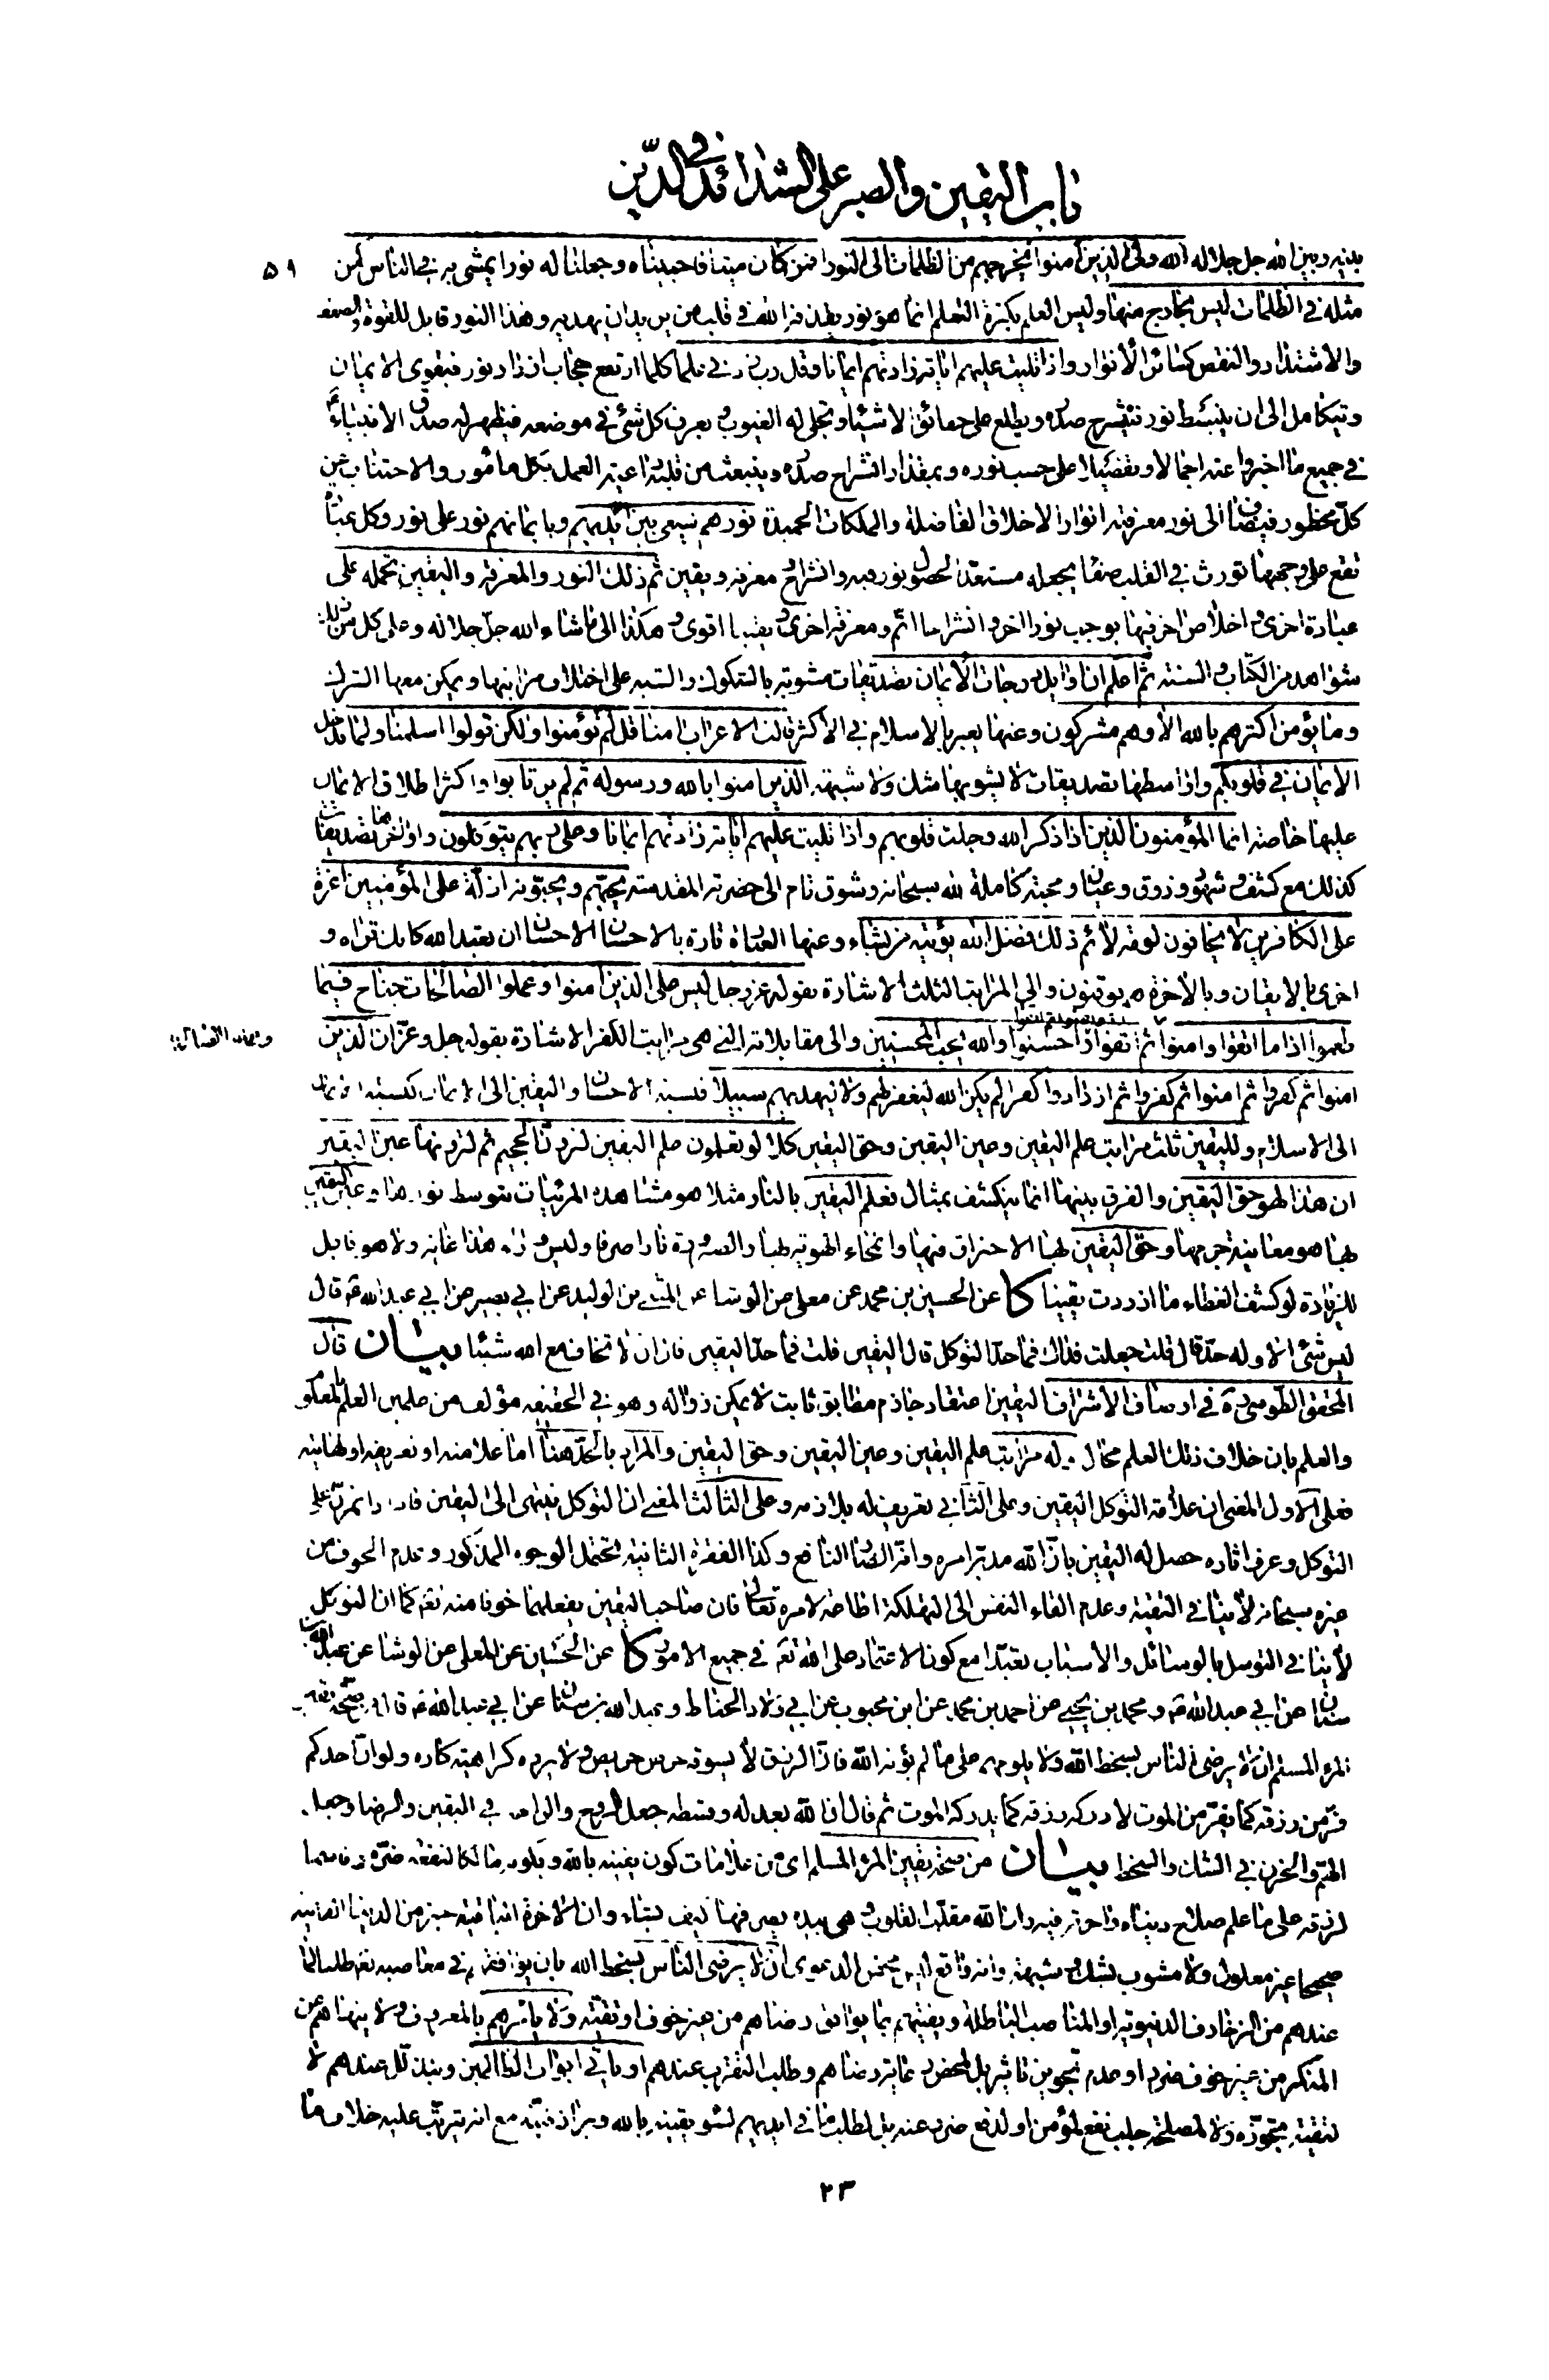 باب اليقين والصبر على الشدائد في الدين
٥٩
بينه وبين الله جل جلاله الله ولي الذين آمنوا يخرجهم من الظلمات الى النور افمن كان ميتا فاحييناه وجعلنا له نورا يمشي به في الناس كمن
مثله في الظلمات ليس بخارج منها وليس العلم بكثرة التعلم انما هو نور يقذفه الله في قلب من يريد ان يهديه وهذا النور قابل للقوة والضعف
والاشتداد والنقص كسائر الأنوار واذا تليت عليهم اياته زادتهم ايمانا وقل رب زدني علما كلما ارتفع حجاب ازداد نور فيقوى الايمان
ويتكامل الى ان ينبسط نور فينشرح صدره ويطلع على حقائق الاشياء وتجلى له الغيوب ويعرف كل شئ في موضعه فيظهر له صدق الانبياء ع
في جميع ما اخبروا عنه اجمالا وتفصيلا على حسب نوره وبمقدار انشراح صدره وينبعث من قلبه داعية العمل بكل مأمور والاجتناب عن
كل محظور فيضاف الى نور معرفته انوار الاخلاق الفاضلة والملكات الحميدة نورهم يسعى بين ايديهم وبايمانهم نور على نور وكل عبادة
تقع على وجهها تورث في القلب صفاء يجعله مستعدا لحصول نور فيه وانشراح ومعرفة ويقين ثم ذلك النور والمعرفة واليقين تحمله على
عبادة اخرى واخلاص اخر فيها يوجب نورا اخر وانشراحا اتم ومعرفة اخرى ويقينا اقوى وهكذا الى ما شاء الله جل جلاله وعلى كل من ذلك
شواهد من الكتاب والسنة ثم اعلم ان اوايل درجات الأيمان تصديقات مشوبة بالشكوك والشبه على اختلاف مراتبها ويمكن معها الشرك
وما يؤمن اكثرهم بالله الا وهم مشركون وعنها يعبر بالاسلام في الأكثر قالت الاعراب امنا قل لم تؤمنوا ولكن قولوا اسلمنا ولما يدخل
الايمان في قلوبكم واواسطها تصديقات لا يشوبها شك ولا شبهة الذين امنوا بالله ورسوله ثم لم يرتابوا واكثر اطلاق الايمان
عليها خاصة انما المؤمنون الذين اذا ذكر الله وجلت قلوبهم واذا تليت عليهم اياته زادتهم ايمانا وعلى ربهم يتوكلون واواخرها تصديقات
كذلك مع كشف وشهود وذوق وعيان ومحبة كاملة لله سبحانه وشوق تام الى حضرته المقدسة يحبهم ويحبونه اذلة على المؤمنين اعزة
على الكافرين لا يخافون لومة لائم ذلك فضل الله يؤتيه من يشاء وعنها العبارة تارة بالاحسان الاحسان ان تعبد الله كانك تراه و
اخرى بالايقان وبالآخرة هم يوقنون والى المراتب الثلث الاشارة بقوله عز وجل ليس على الذين امنوا وعملوا الصالحات جناح فيما
طعموا اذا ما اتقوا وامنوا ثم اتقوا واحسنوا والله يحب المحسنين والى مقابلاته التي هي مراتب الكفر الاشارة بقوله جل وعز ان الذين
وعملوا الصالحات
امنوا ثم كفروا ثم امنوا ثم كفروا ثم ازدادوا كفرا لم يكن الله ليغفر لهم ولا ليهديهم سبيلا فنسبة الاحسان واليقين الى الايمان كنسبة الايمان
الى الاسلام ولليقين ثلث مراتب علم اليقين وعين اليقين وحق اليقين كلا لو تعلمون علم اليقين لترون الجحيم ثم لترونها عين اليقين
ان هذا لهو حق اليقين والفرق بينها انما ينكشف بمثال فعلم اليقين بالنار مثلا هو مشاهدة المرئيات بتوسط نورها وعين اليقين
بها هو معاينة جرمها وحق اليقين بها الاحتراق فيها وانمحاء الهوية بها والصيرورة نارا صرفا وليس وراء هذا غاية ولا هو قابل
للزيادة لو كشف الغطاء ما ازددت يقينا كا عن الحسين بن محمد عن معلى عن الوشا عن المثنى بن الوليد عن ابي بصير عن ابي عبد الله ع قال
ليس شئ الا وله حد قال قلت جعلت فداك فما حد التوكل قال اليقين قلت فما حد اليقين قال ان لا تخاف مع الله شيئا بيان قال
المحقق الطوسي ره في اوصاف الأشراف اليقين اعتقاد جازم مطابق ثابت لا يمكن زواله وهو في الحقيقة مؤلف من علمين العلم بالمعلوم
والعلم بان خلاف ذلك العلم محال وله مراتب علم اليقين وعين اليقين وحق اليقين والمراد بالحد هنا اما علامته او تعريفه او نهايته
فعلى الأول المعنى ان علامة التوكل اليقين وعلى الثاني تعريف له بلازمه وعلى الثالث المعنى ان التوكل ينتهى الى اليقين فاذا تمرن على
التوكل وعرف اثاره حصل له اليقين بان الله مدبر امره وانه الضار النافع وكذا الفقرة الثانية تحتمل الوجوه المذكورة وعدم الخوف من
غيره سبحانه لا ينافي التقية وعدم القاء النفس الى التهلكة اطاعة لامره تعالى فان صاحب اليقين يفعلهما خوفا منه تع كما ان التوكل
لا ينافي التوسل بالوسائل والأسباب تعبدا مع كون الاعتماد على الله تع في جميع الامور كا عن الحسين عن المعلى عن الوشا عن عبد الله بن
سنان عن ابي عبد الله ع ومحمد بن يحيى عن احمد بن محمد عن ابن محبوب عن ابي ولاد الحناط وعبد الله بن سنان عن ابي عبد الله ع قال من صحة يقين
المرء المسلم ان لا يرضى الناس بسخط الله ولا يلومهم على ما لم يؤته الله فان الرزق لا يسوقه حرص حريص ولا يرده كراهية كاره ولو ان احدكم
فر من رزقه كما يفر من الموت لادركه رزقه كما يدركه الموت ثم قال ان الله بعدله وقسطه جعل الروح والراحة في اليقين والرضا وجعل
الهم والحزن في الشك والسخط بيان من صحة يقين المرء المسلم اى من علامات كون يقينه بالله وبكونه مالكا لنفعه وضره وقاسما
لرزقه على ما علم صلاح دنياه واخرته فيه وان الله مقلب القلوب وهي بيده يصرفها كيف يشاء وان الاخرة الباقية خير من الدنيا الفانية
صحيحا غير معلول ولا مشوب بشك وشبهة وانه واقع ليس محض الدعوى ان لا يرضى الناس بسخط الله بان يوافقهم في معاصيه تع طلبا لما
عندهم من الزخارف الدنيوية او المناصب الباطلة ويفتيهم بما يوافق رضاهم من غير خوف او تقية ولا يأمرهم بالمعروف ولا ينهاهم عن
المنكر من غير خوف ضرر او عدم تجويز تاثير بل لمحض رعاية رضاهم وطلب التقرب عندهم او ياتي ابواب الظالمين ويتذلل عندهم لا
لتقية مجوزة ولا لمصلحة جلب نفع لمؤمن او لدفع ضرر عنه بل لطلب ما في ايديهم لسوء يقينه بالله وبرازقيته مع انه يترتب عليه خلاف ما
٢٣